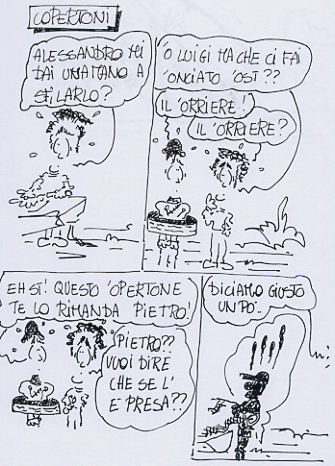 COPERTONI
ALESSANDRO MI
DAI UNA MANO A
SFILARLO?
'O LUIGI MA CHE CI FAI
'ONCIATO 'OSÌ??
IL 'ORRIERE!
IL 'ORRIERE?
EH SÌ! QUESTO 'OPERTONE
TE LO RIMANDA PIETRO!
PIETRO??
VUOI DIRE
CHE SE L'
È PRESA??
DICIAMO GIUSTO
UN PÒ..